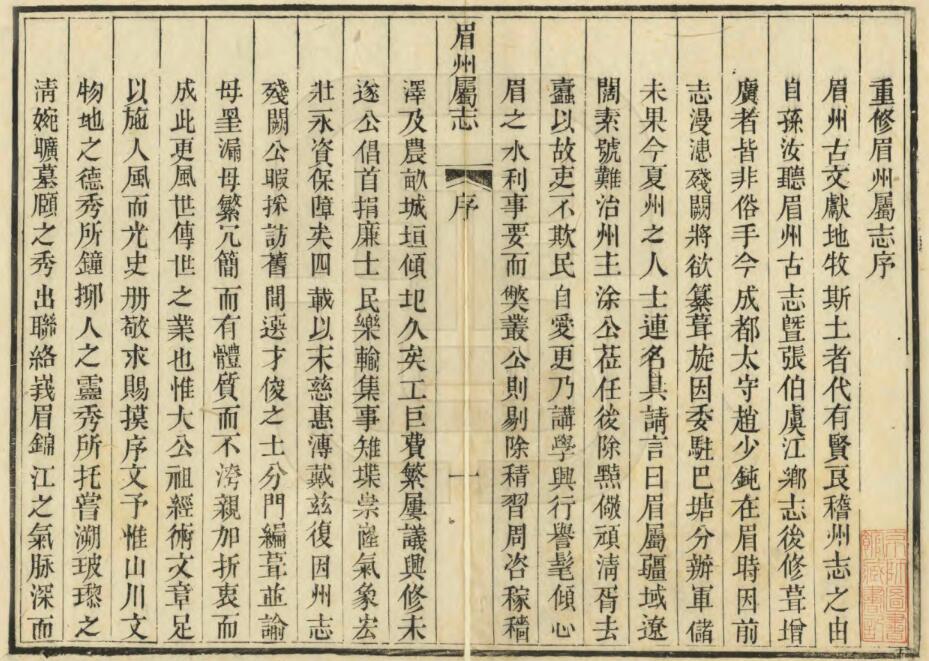 重修眉州屬志序
眉州古文獻地牧斯土者代有賢良稽州志之由
自孫汝聽眉州古志暨張伯虞江鄉志後修葺增
廣者皆非俗手今成都太守趙少鈍在眉時因前
志漫漶殘闕將欲纂葺旋因委駐巴塘分辦軍儲
未果今夏州之人士連名具請言曰眉屬疆域遼
闊素號難治州主涂公莅任後除黠儆頑清胥去
蠹以故吏不欺民自愛更乃講學興行譽髦傾心
眉之水利事要而獘叢公則剔除積習周咨稼穡
眉州屬志
序
一
澤及農畝城垣傾圮久矣工巨費繁屢議興修未
遂公倡首捐廉士民樂輸集事雉堞崇隆氣象宏
壯永資保障矣四載以來慈惠溥戴玆復因州志
殘闕公暇採訪舊聞遴才俊之士分門編葺並諭
毋畧漏毋繁冗簡而有體質而不滂親加折衷而
成此更風世傳世之業也惟大公祖經術文章足
以施人風而光史册敬求賜撰序文予惟山川文
物地之德秀所鐘挪人之靈秀所托嘗溯玻瓈之
清婉曠墓頤之秀出聯絡峩眉錦江之氣脉深而